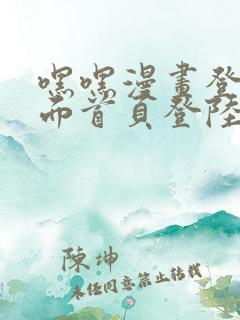 嘿嘿漫畫登
而首頁登陸
陳坤
未经同意禁止转载